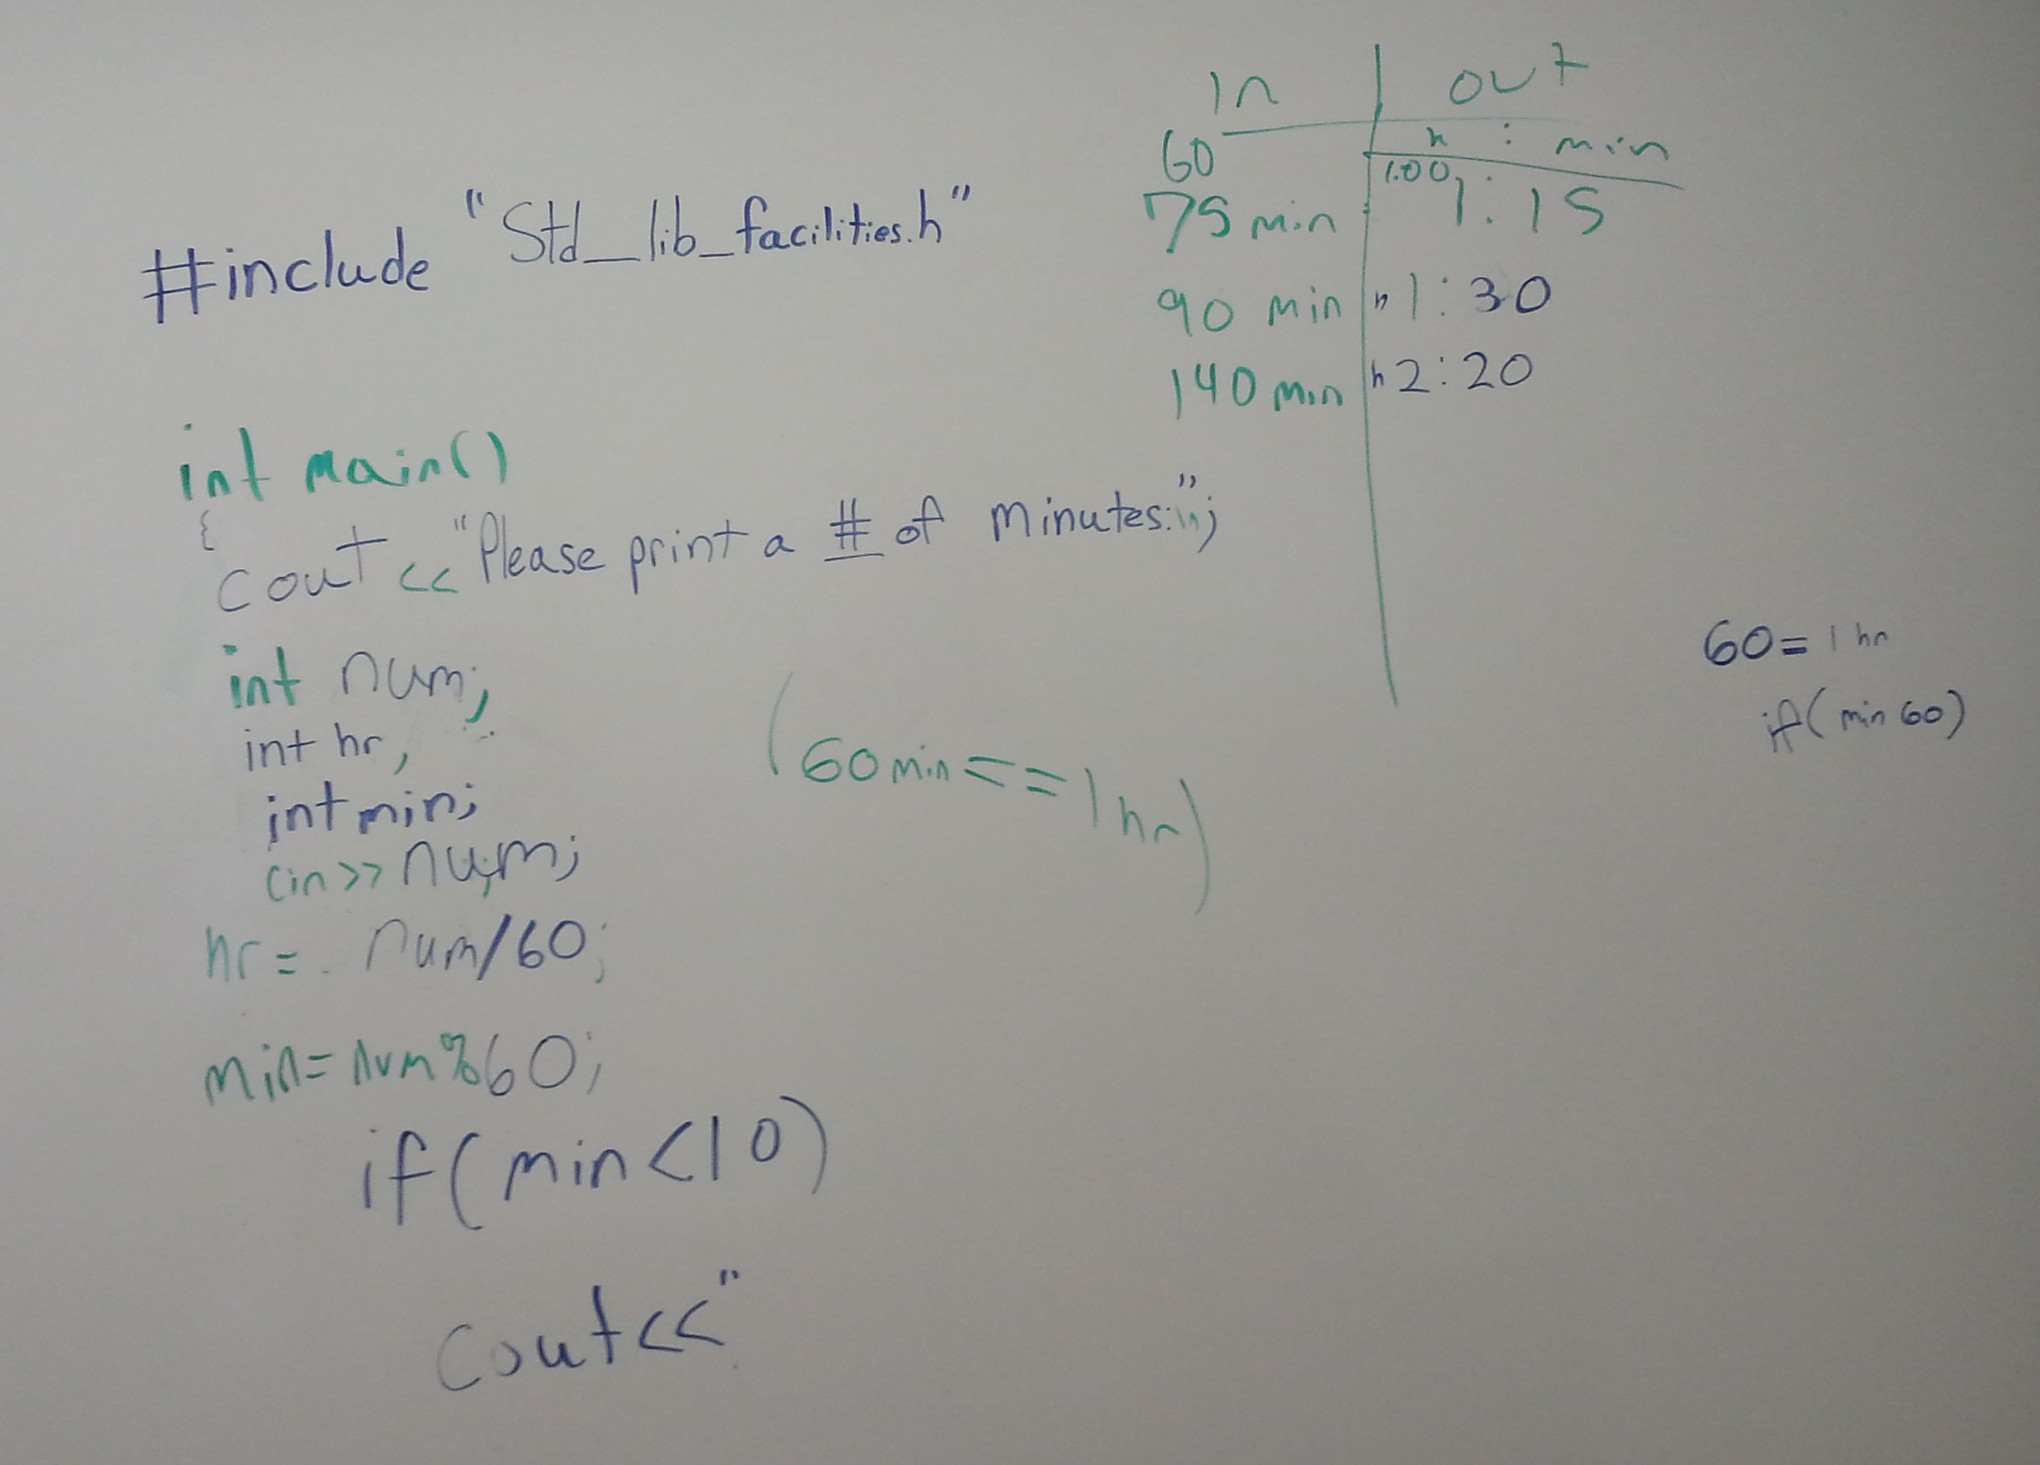 #include "Std_lib_facilities.h"
int main()
{
cout << "Please print a # of minutes:\n";
int num;
int hr,
int min;
cin >> num;
hr = num/60;
min = num%60;
if(min<10)
cout<<"
in | out
h : min
60 1:00
75 min 1:15
90 min h 1:30
140 min h 2:20
(60 min <== 1 hr)
60 = 1 hr
if(min 60)